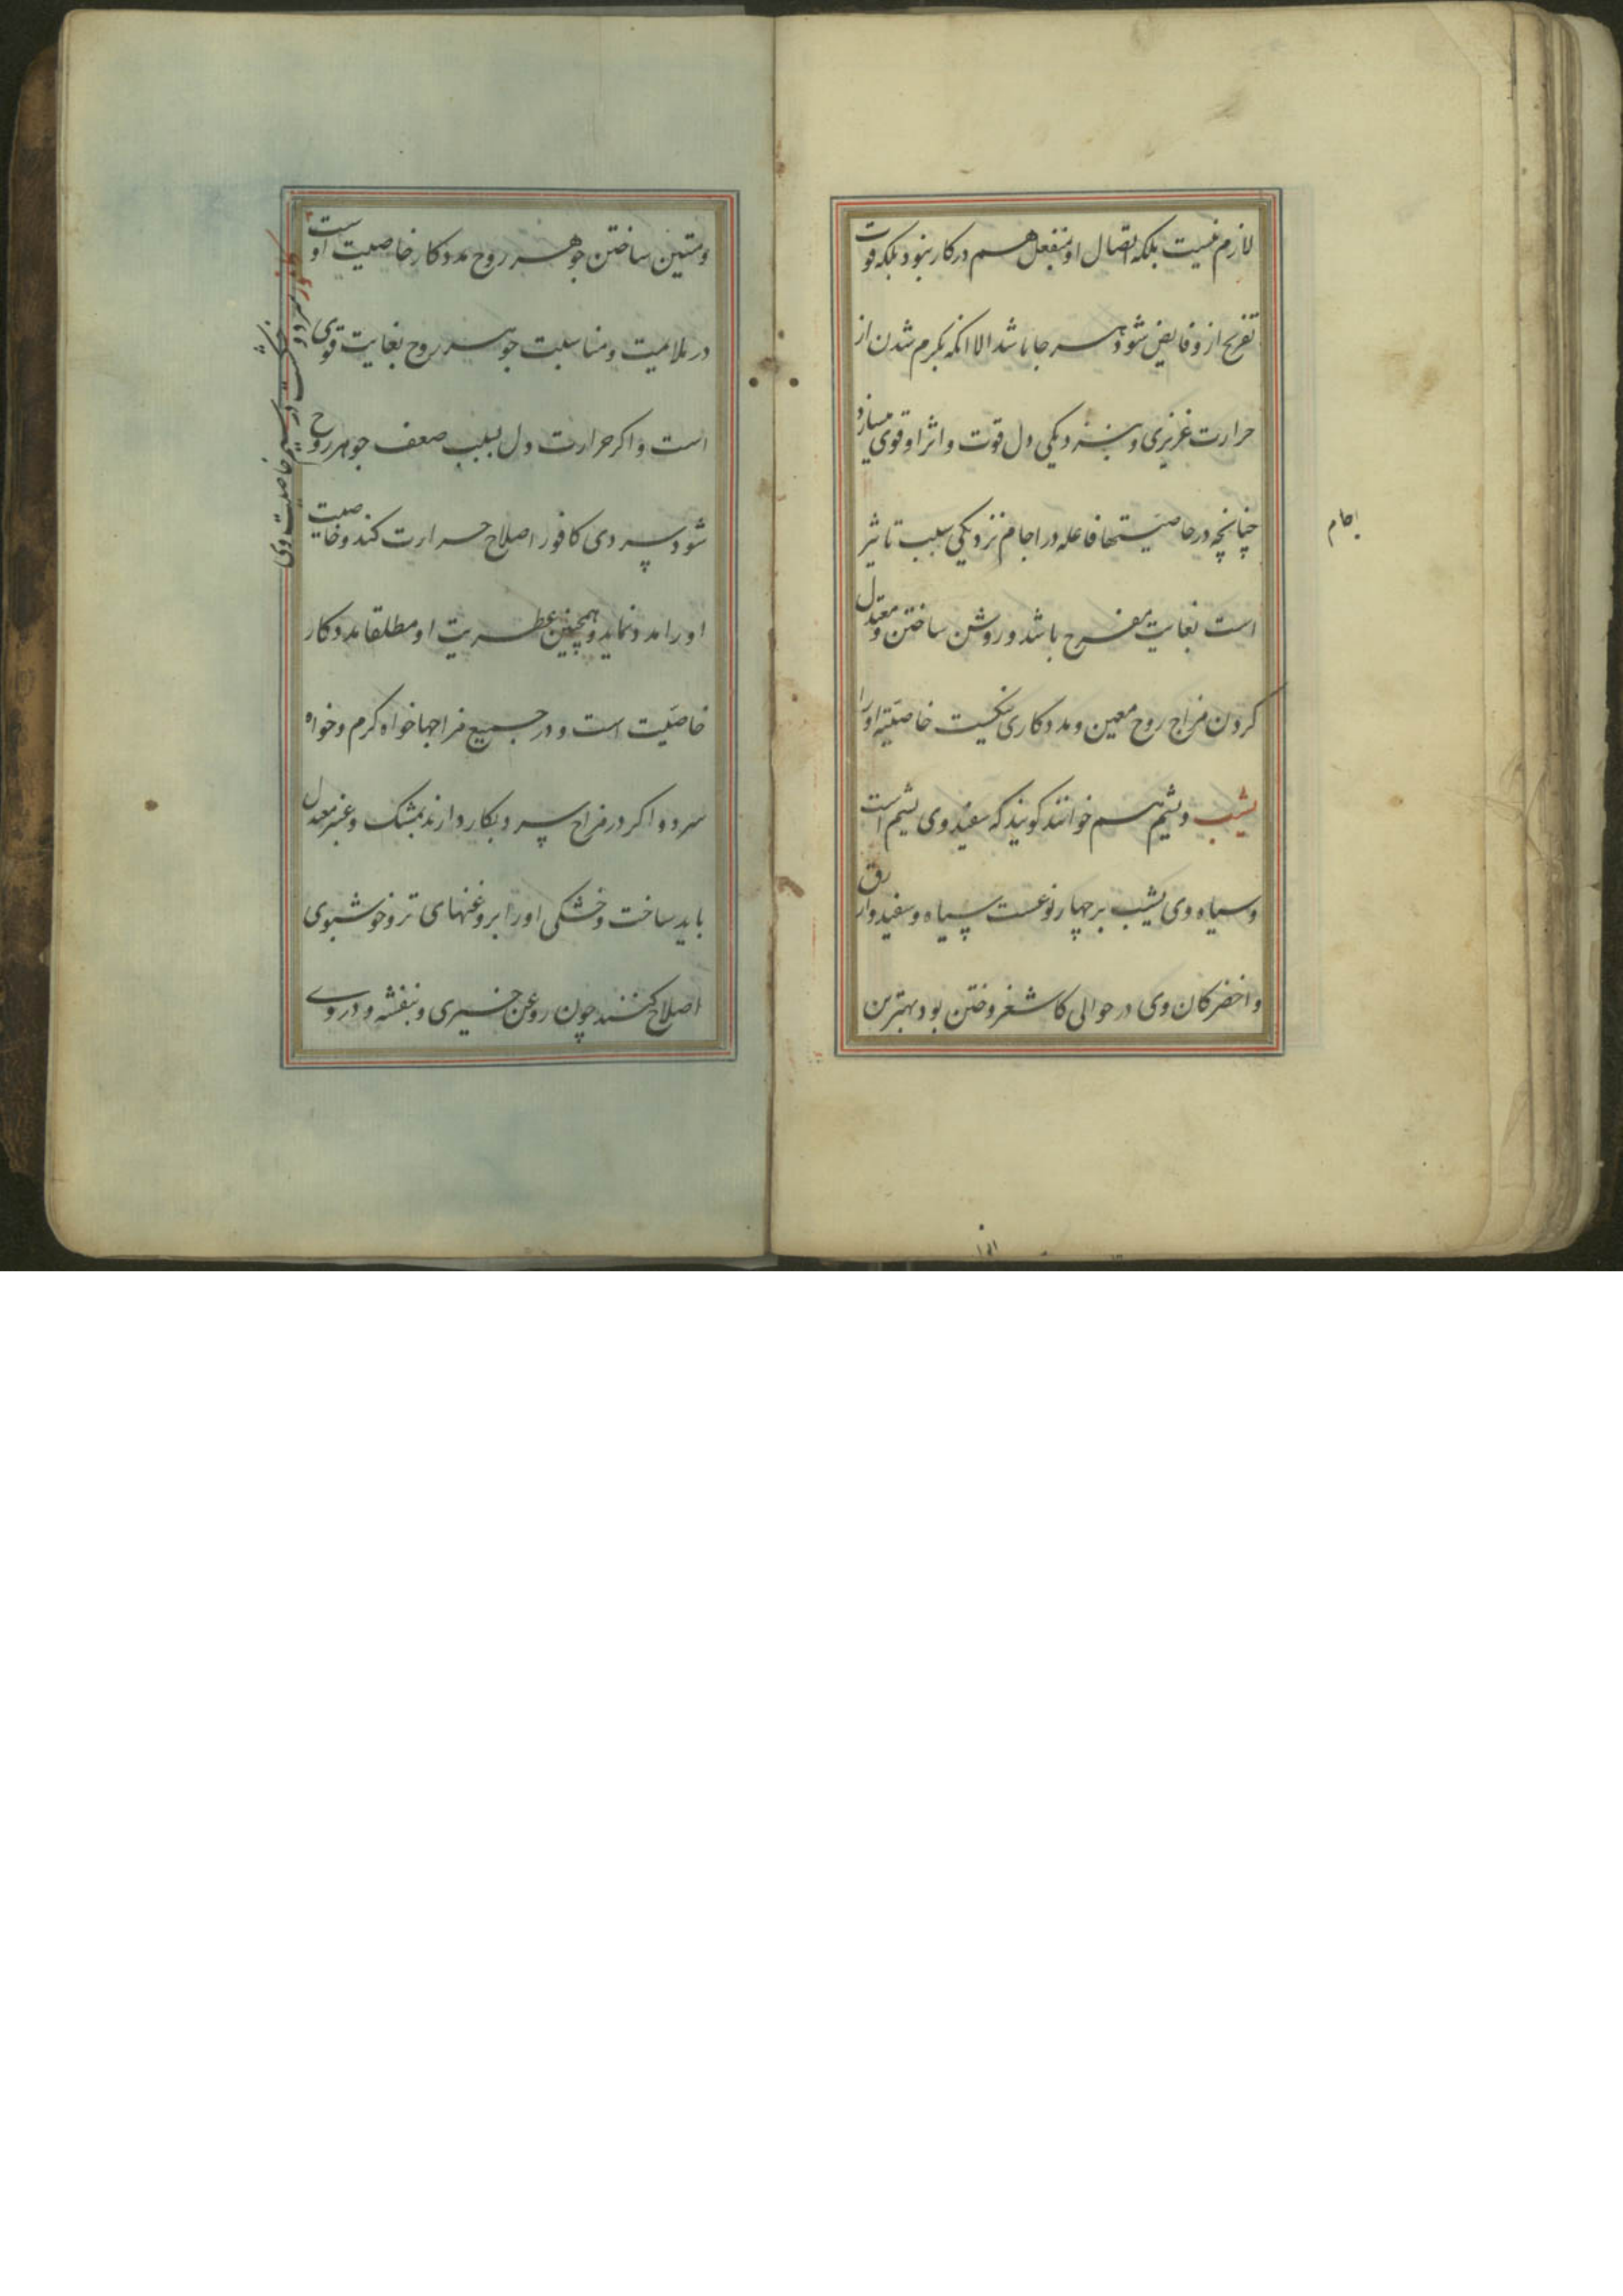 لازم نیست بلکه اتصال او منفعل هم در کار نبود بلکه قوت
تفریح از و فایض شود هر جا باشد الا انکه بکرم شدن از
حرارت غریزی و نزدیکی دل قوت و اثر او قوی میسازد
چنانچه در خاصیتها فاعله در اجام نزدیکی سبب تاثیر
است بغایت مفرح باشد و روشن ساختن و معتدل
کردن مزاج روح معین و مددکاری نکیست خاصیته اورا
یشب و یشم هم خوانند کویند که سفید وی یشم است
و سیاه وی یشب بر چهار نوعست سیاه و سفید و ازرق
و اخضر کان وی در حوالی کاشغر و ختن بود بهترین
اجام
و متین ساختن جوهر روح مددکار خاصیت اوست
در ملایمیت و مناسبت جوهر روح بغایت قوی
است و اکر حرارت دل بسبب ضعف جوهر روح
شود سردی کافور اصلاح حرارت کند و خاصیت
اورا مدد نماید و همچنین عطریت او مطلقا مددکار
خاصیت است و در جمیع مزاجها خواه کرم و خواه
سرد و اکر در مزاج سرد بکار دارند بمشک و عنبر معتدل
باید ساخت و خشکی اورا بروغنهای تر و خوشبوی
اصلاح کنند چون روغن خیری و بنفشه و در وی
کافور سرد و خشکست در سیم خاصیت وی